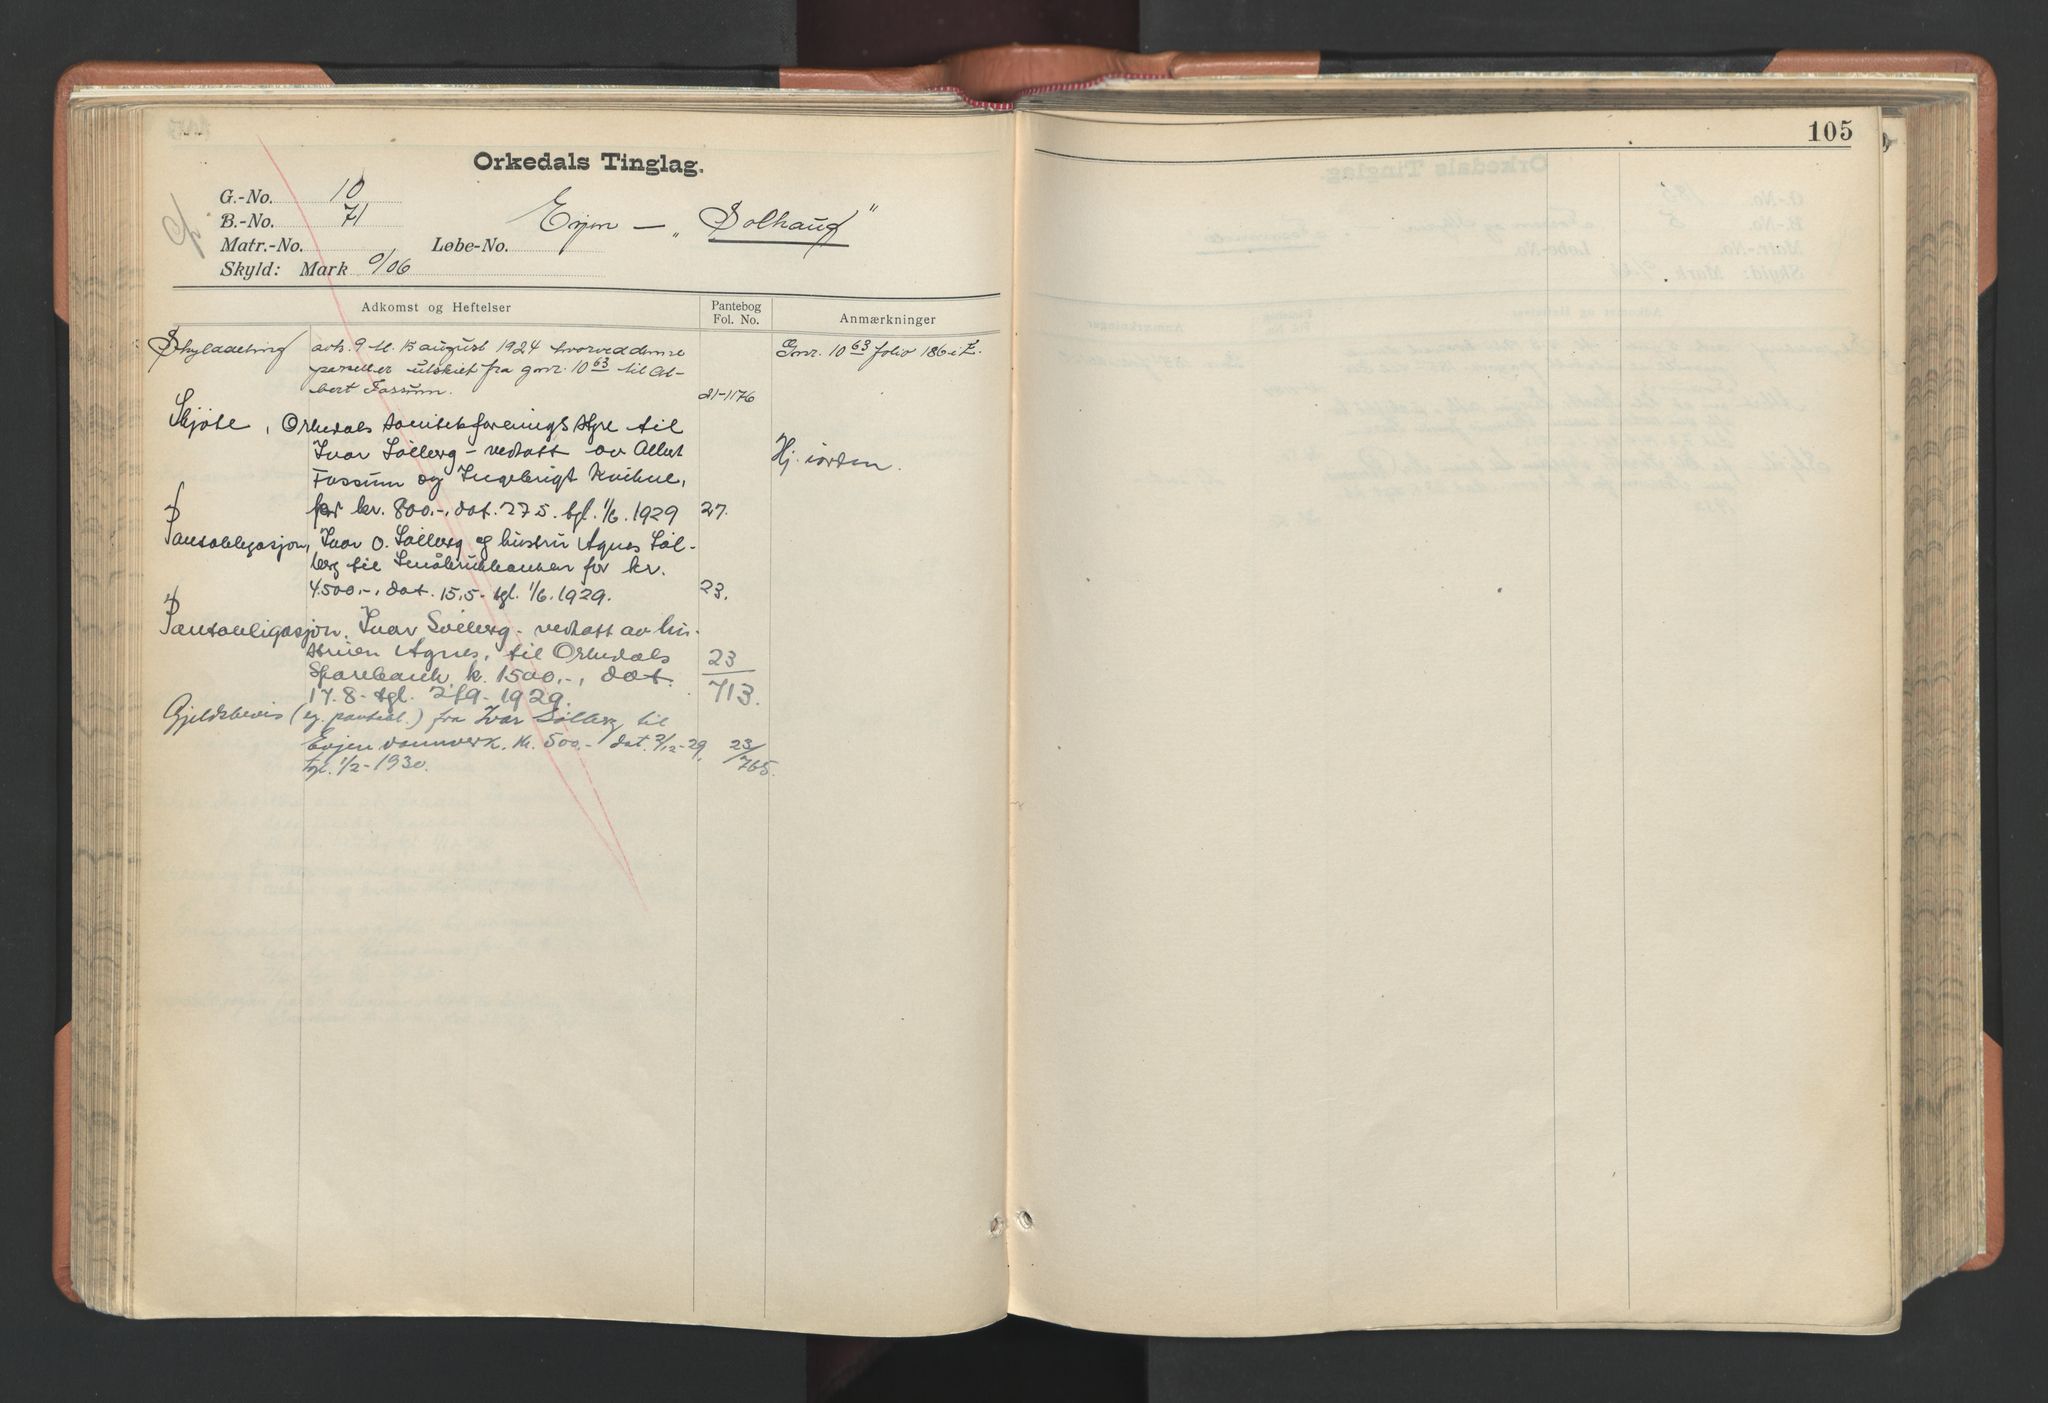 105
Orkedals Tinglag.
G.-No. 10
B.-No. 71 Evjen — „Solhaug"
Matr.-No. Løbe-No.
Skyld: Mark 0/06
Adkomst og Heftelser Pantebog Fol. No. Anmærkninger
Skylddeling avh. 9 tl. 15 august 1924 hvorved denne Gnr. 10 63 folio 186 i
parsell er utskiet fra gnr. 10 63 til Al-
bert Fossum. 21-1176
Skjöte, Orkedals Samtykforenings styre til
Ivar Solberg - vedtatt av Albert Hj. iorden.
Fossum og Ingebrigt Kvikne,
for kr. 800.-, dat. 27 5. tgl. 1/6. 1929 27.
Pantobligasjon, Ivar O. Solberg og hustru Agnes Sol-
berg til Småbrukbanken for kr.
4500.-, dat. 15.5- tgl. 1/6. 1929. 23.
Pantobligasjon, Ivar Solberg - vedtatt av hu-
struen Agnes, til Orkedals 23
Sparebank k. 1500.-, dat. 713.
17.8- tgl. 2/9- 1929.
Gjeldsbevis (ej. pantobl.) fra Ivar Solberg til
Evjen vannverk. kr. 500.- dat. 2/12-29, 23/765.
tgl. 1/2-1930.